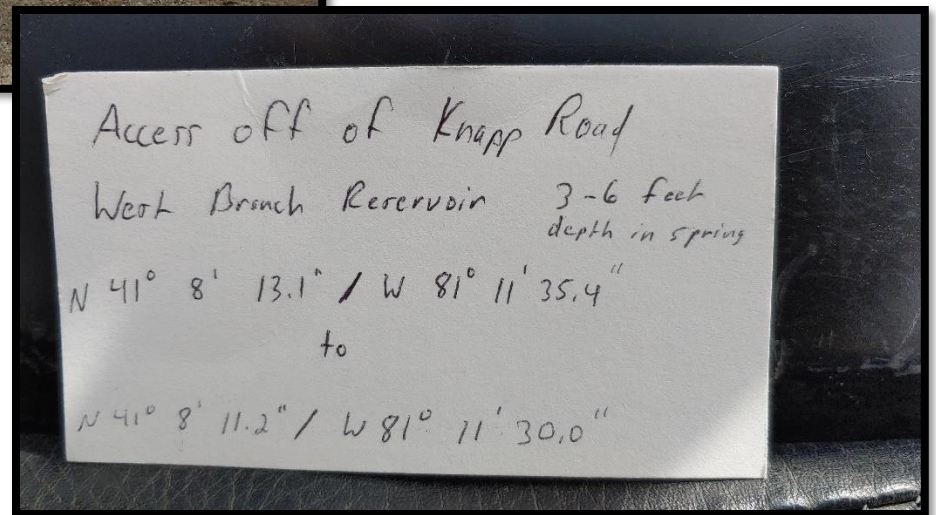 Access off of Knapp Road
West Branch Reservoir 3-6 feet
depth in spring
N 41° 8' 13.1" / W 81° 11' 35.4"
to
N 41° 8' 11.2" / W 81° 11' 30.0"